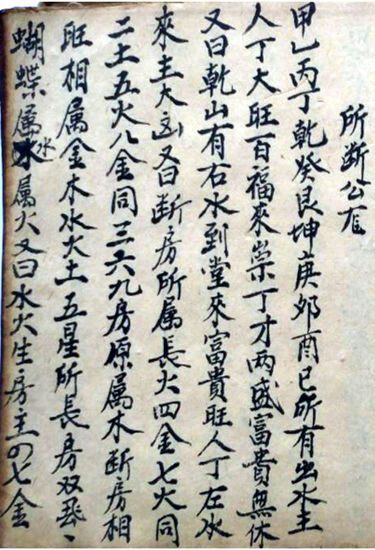 所断公
甲乙丙丁乾癸艮坤庚邜酉巳所有出水主
人丁大旺百福來崇丁才両盛富貴無休
又曰乾山有右水到堂來富貴旺人丁左水
來主大凶又曰断房所属長火四金七火同
二土五火八金同三六九房原属木断房相
旺相属金木水火土五星所長房双
蝴蝶属水属火又曰水火生房主の七金